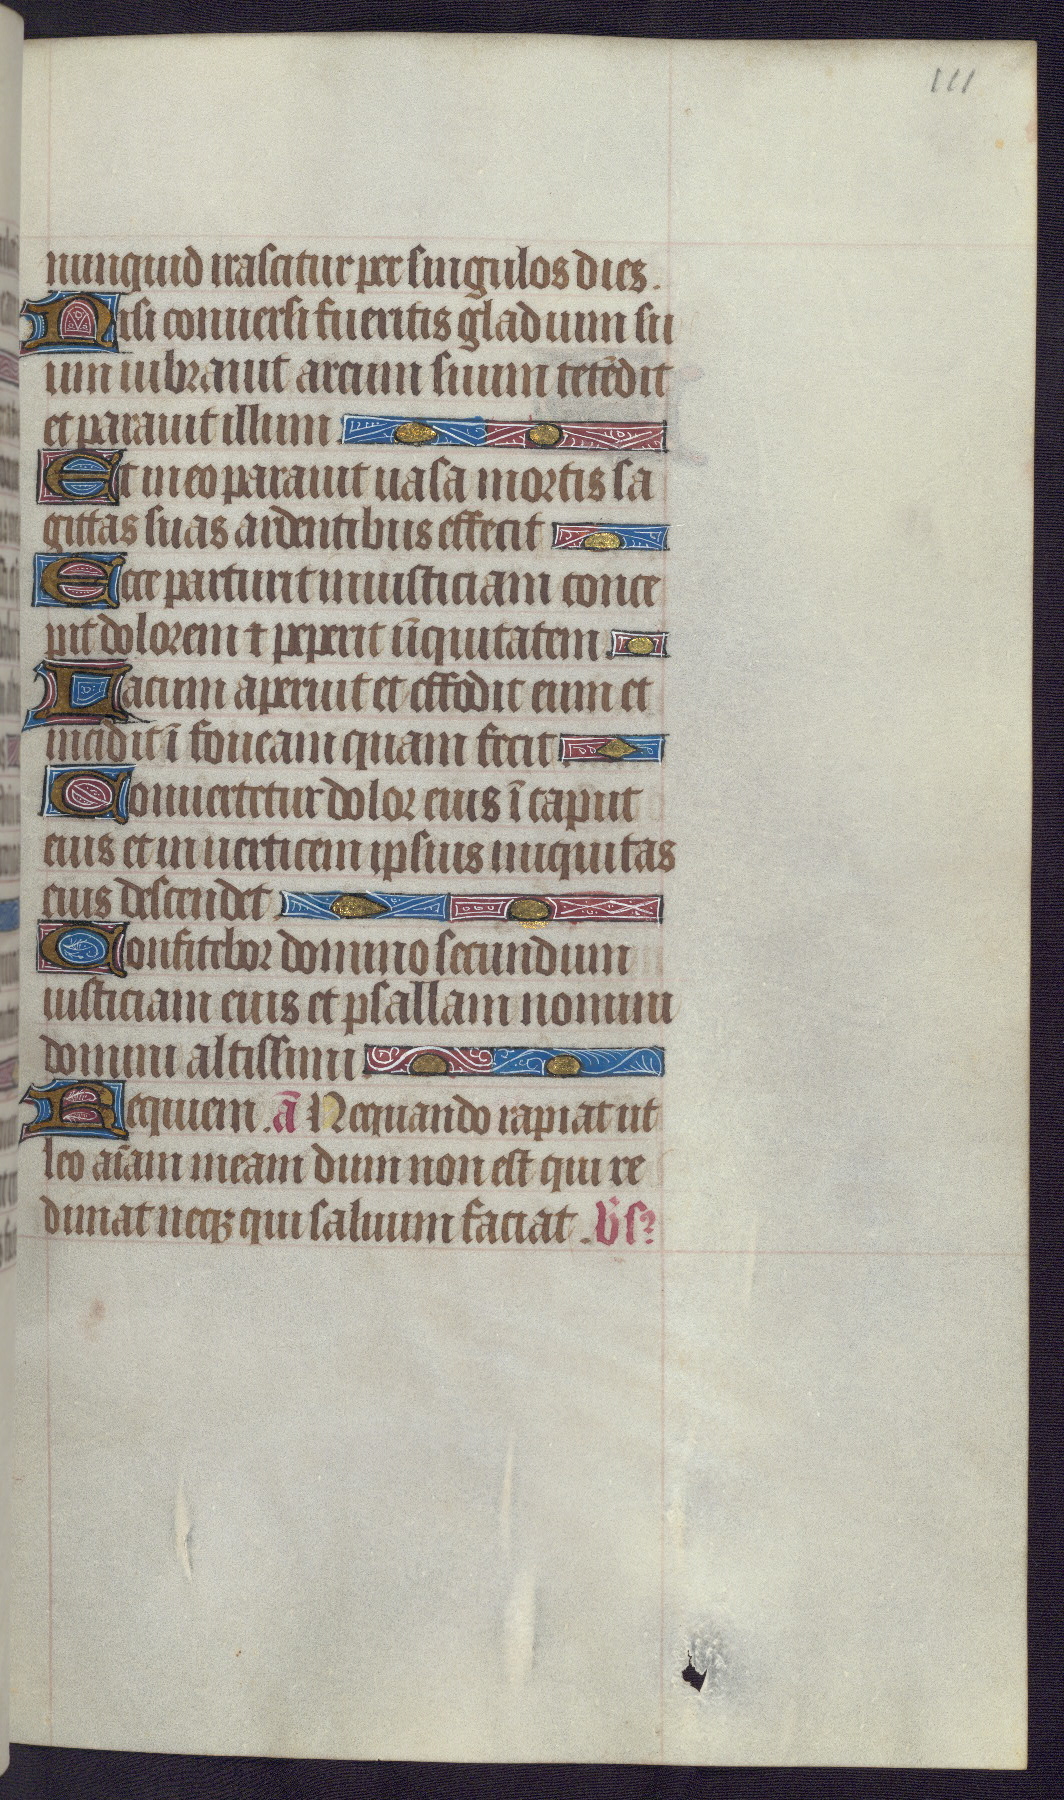 111
nunquid irascitur per singulos dies.
Nisi conuersi fueritis gladium su
um uibrauit arcum suum tetēdit
et parauit illum.
Et in eo parauit uasa mortis sa
gittas suas ardentibus effecit
Ecce parturit iniusticiam conce
pit dolorem ⁊ peperit iīquitatem.
Lacum aperuit et effodit eum et
incidit ī foueam quam fecit
Conuertetur dolor eius ī caput
eius et in uerticem ipsius iniquitas
eius descendet
Confitebor domino secundum
iusticiam eius et psallam nomini
domini altissimi
Requiem. ā Nequando rapiat ut
leo aīam meam dum non est qui re
dimat neqꝫ qui saluum faciat.